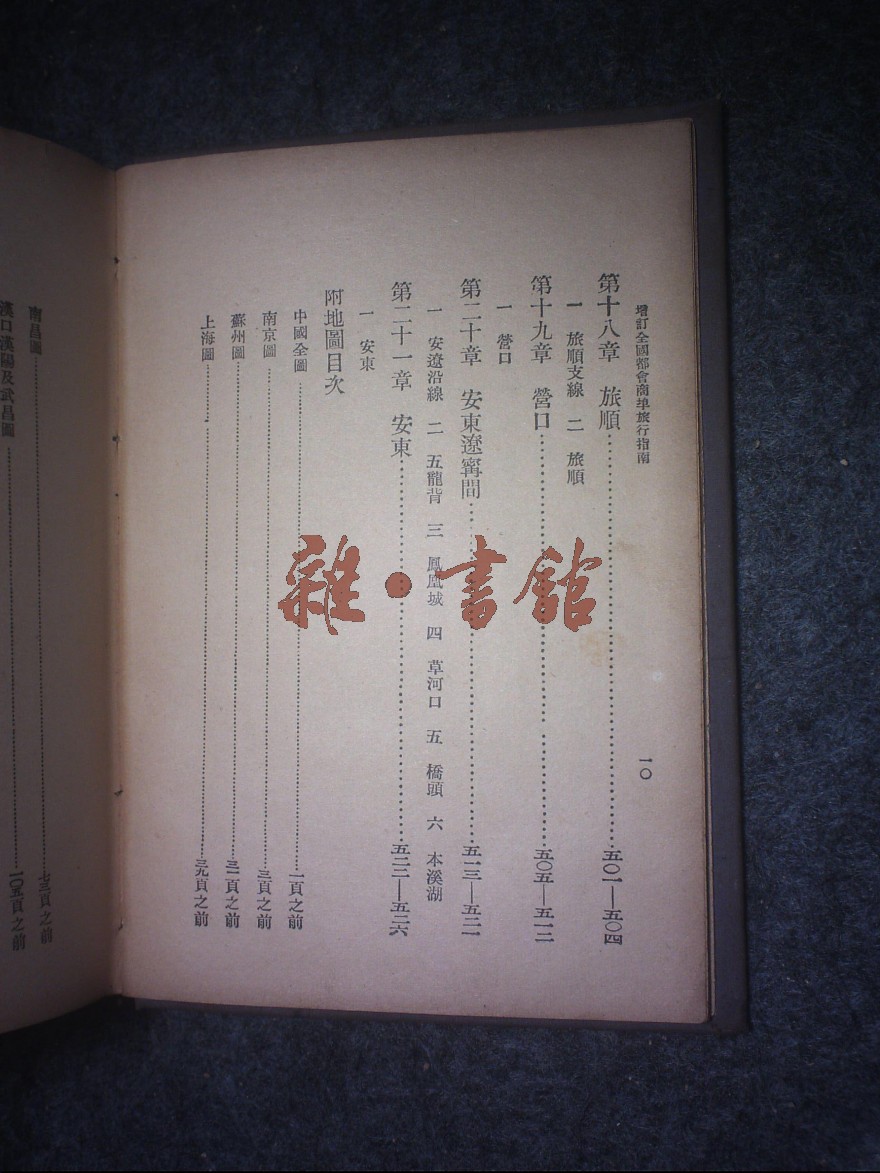 增訂全國都會商埠旅行指南
一〇
第十八章　旅順…………五〇一—五〇四
一　旅順支線　二　旅順
第十九章　營口…………五〇五—五一二
一　營口
第二十章　安東遼寗間…………五一三—五二一
一　安遼沿線　二　五龍背　三　鳳凰城　四　草河口　五　橋頭　六　本溪湖
第二十一章　安東…………五二二—五二六
一　安東
附地圖目次
中國全圖…………一頁之前
南京圖…………三頁之前
蘇州圖…………三一頁之前
上海圖…………三九頁之前
南昌圖…………七三頁之前
漢口漢陽及武昌圖…………一〇五頁之前
雜·書館